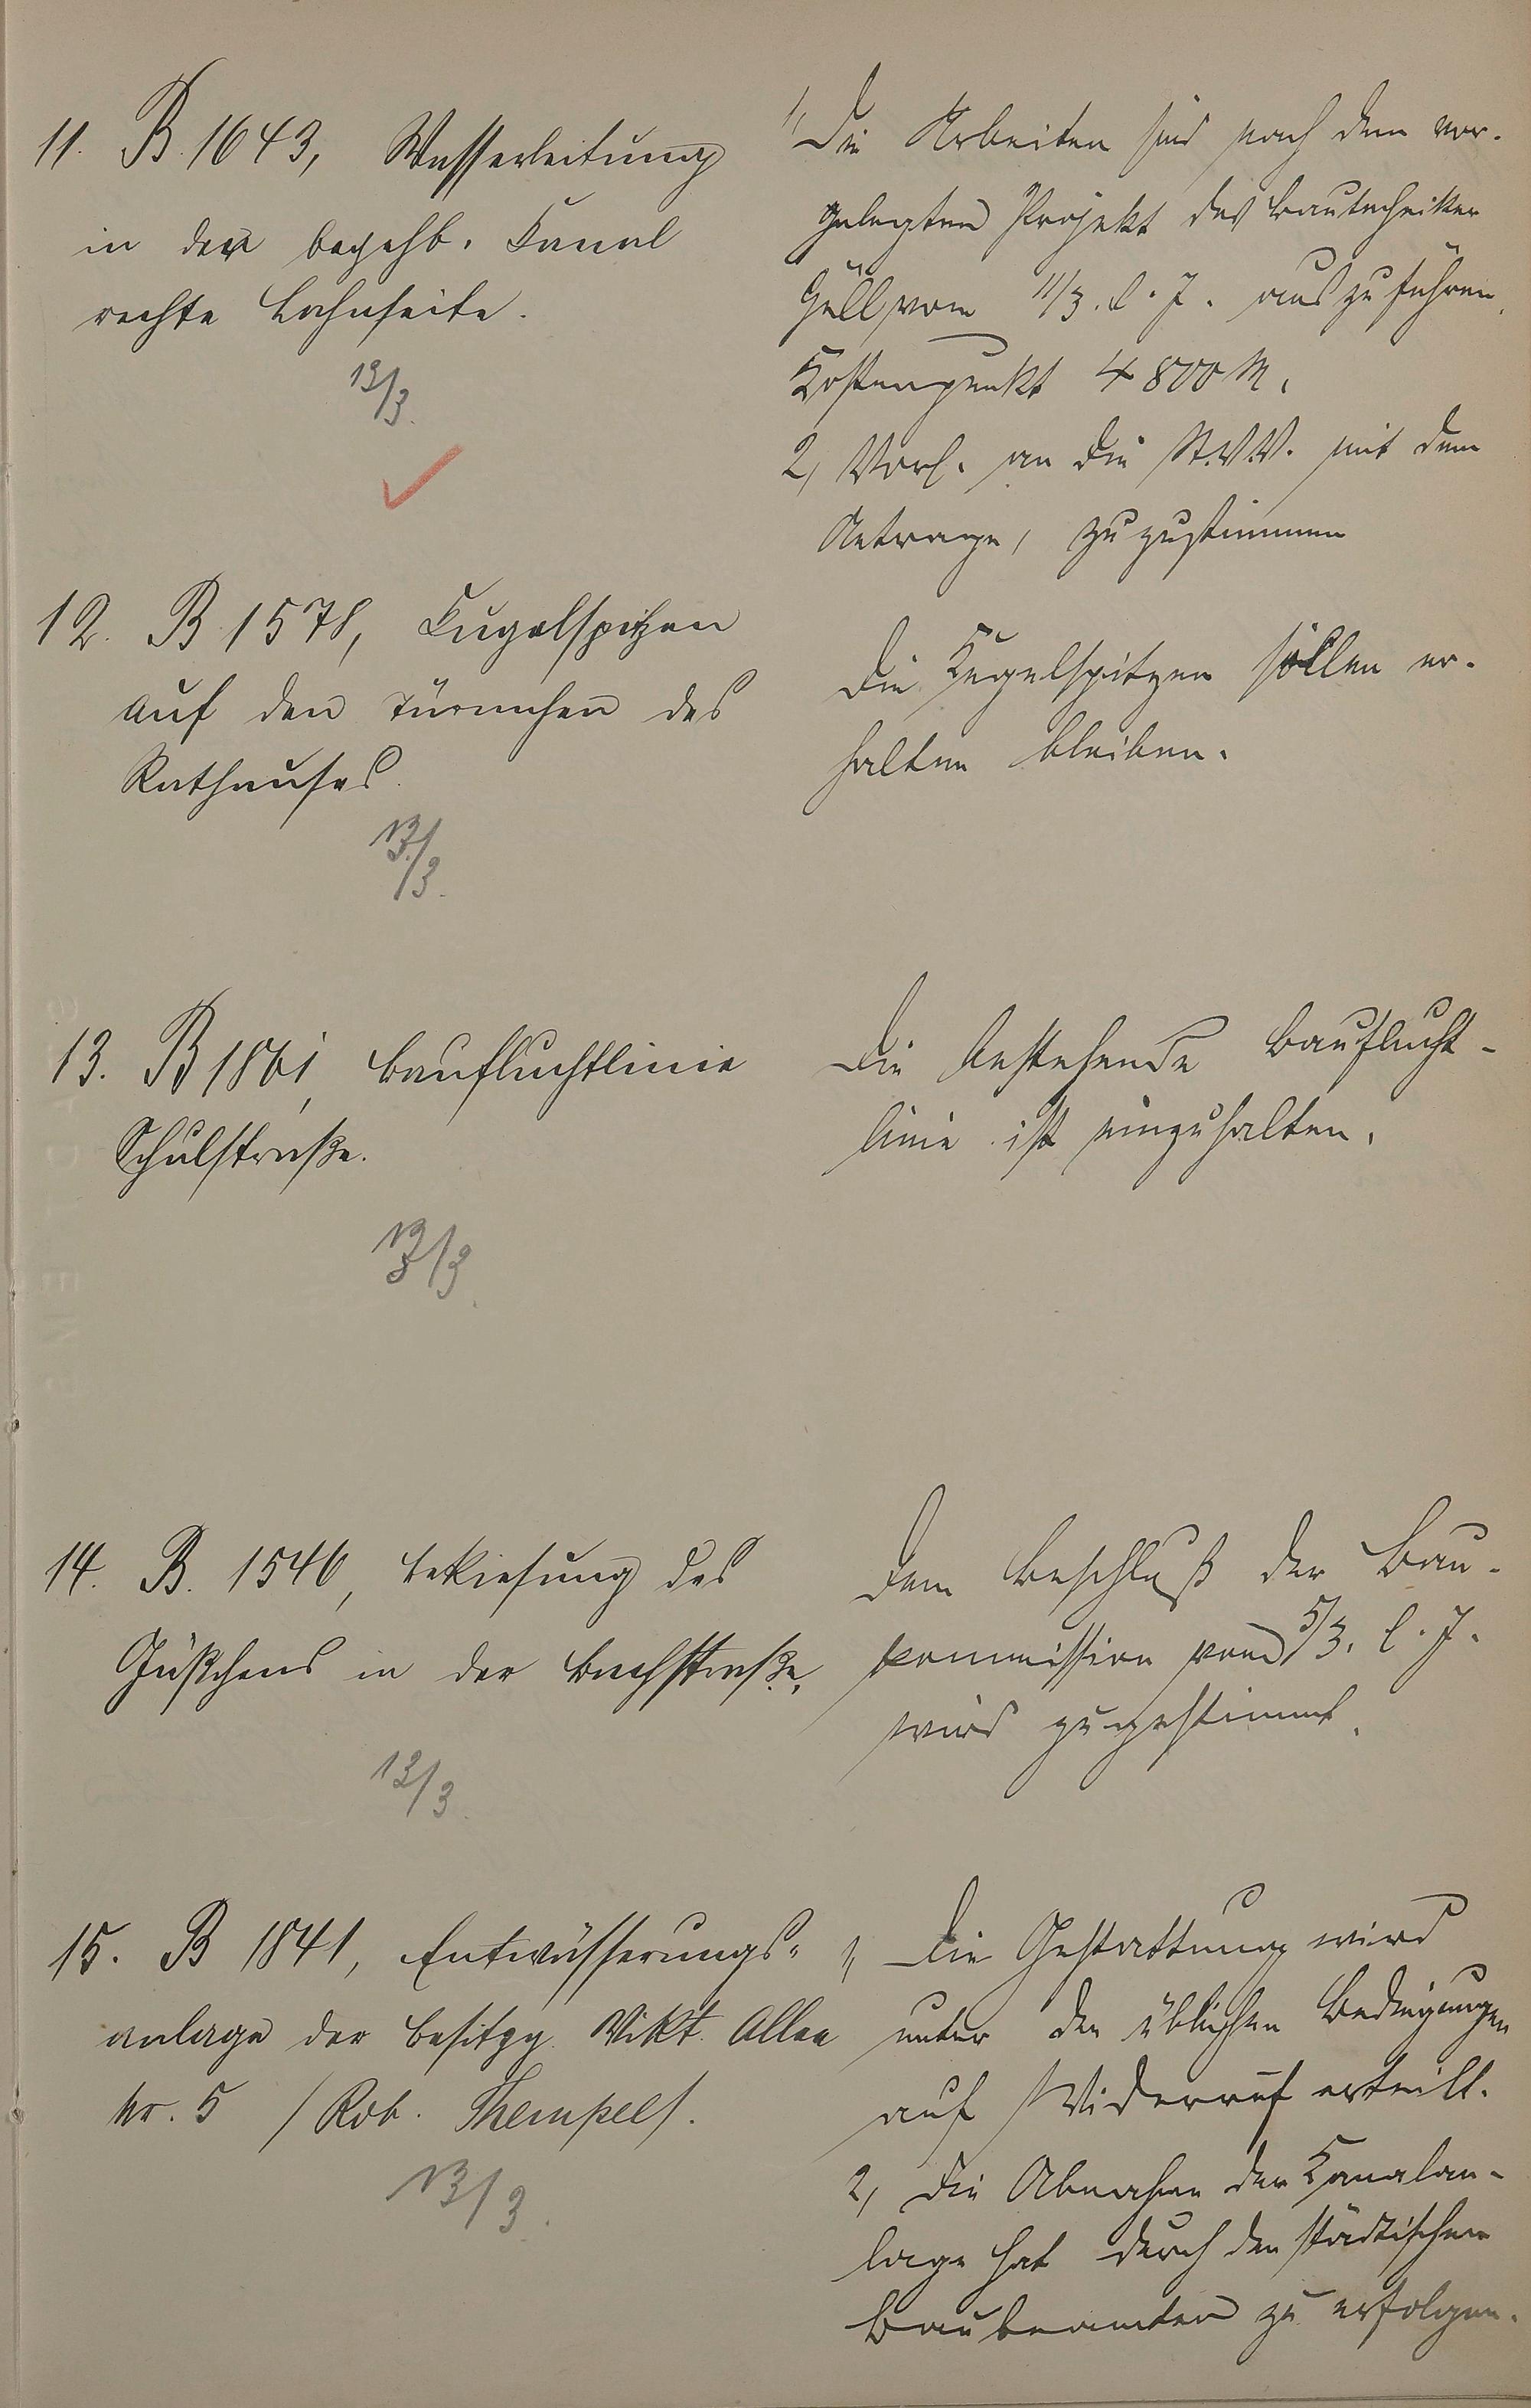 11. B. 1643, Wasserleitung
in der begehb. Canal
rechte Lahnseite.
13/3.
1, Die Arbeiten sind nach dem vor-
gelegten Projekt des Bautechniker
Göll vom 11/3. l. J. auszuführen.
Kostenpunkt 4800 M.
2, Vorl. an die St.V.V. mit dem
Antrage, zuzustimmen
12. B. 1578, Kugelspitzen
auf den Türmchen des
Rathauses.
13/3.
Die Kugelspitzen sollen er-
halten bleiben.
13. B 1861, Baufluchtlinie
Schulstraße.
13/3.
Die bestehende Bauflucht-
linie ist einzuhalten.
14. B. 1546, Bekiesung des
Gäßchens in der Bachstraße.
13/3.
Dem Beschluß der Bau-
kommission vom 5/3. l. J.
wird zugestimmt.
15. B 1841, Entwässerungs-
anlage der Besitzg. Vikt. Allee
Nr. 5 /Rob. Thempel/.
13/3.
1, Die Gestattung wird
unter den üblichen Bedingungen
auf Widerruf erteilt.
2, Die Abnahme der Kanalan-
lage hat durch den städtischen
Baubeamten zu erfolgen.